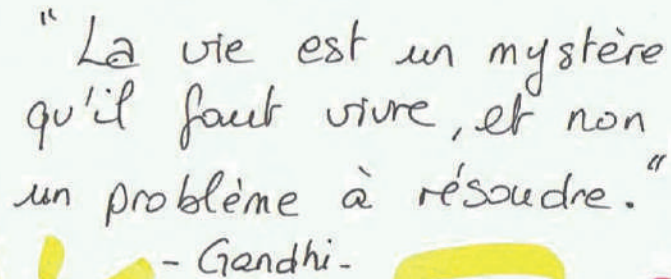 "La vie est un mystère
qu'il faut vivre, et non
un problème à résoudre."
- Gandhi -